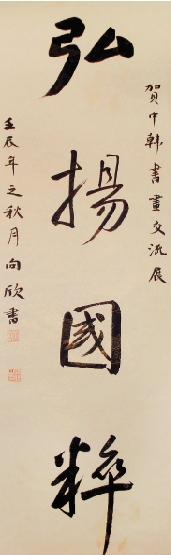 賀中韓書畫交流展
弘揚國粹
壬辰年之秋月向欣書